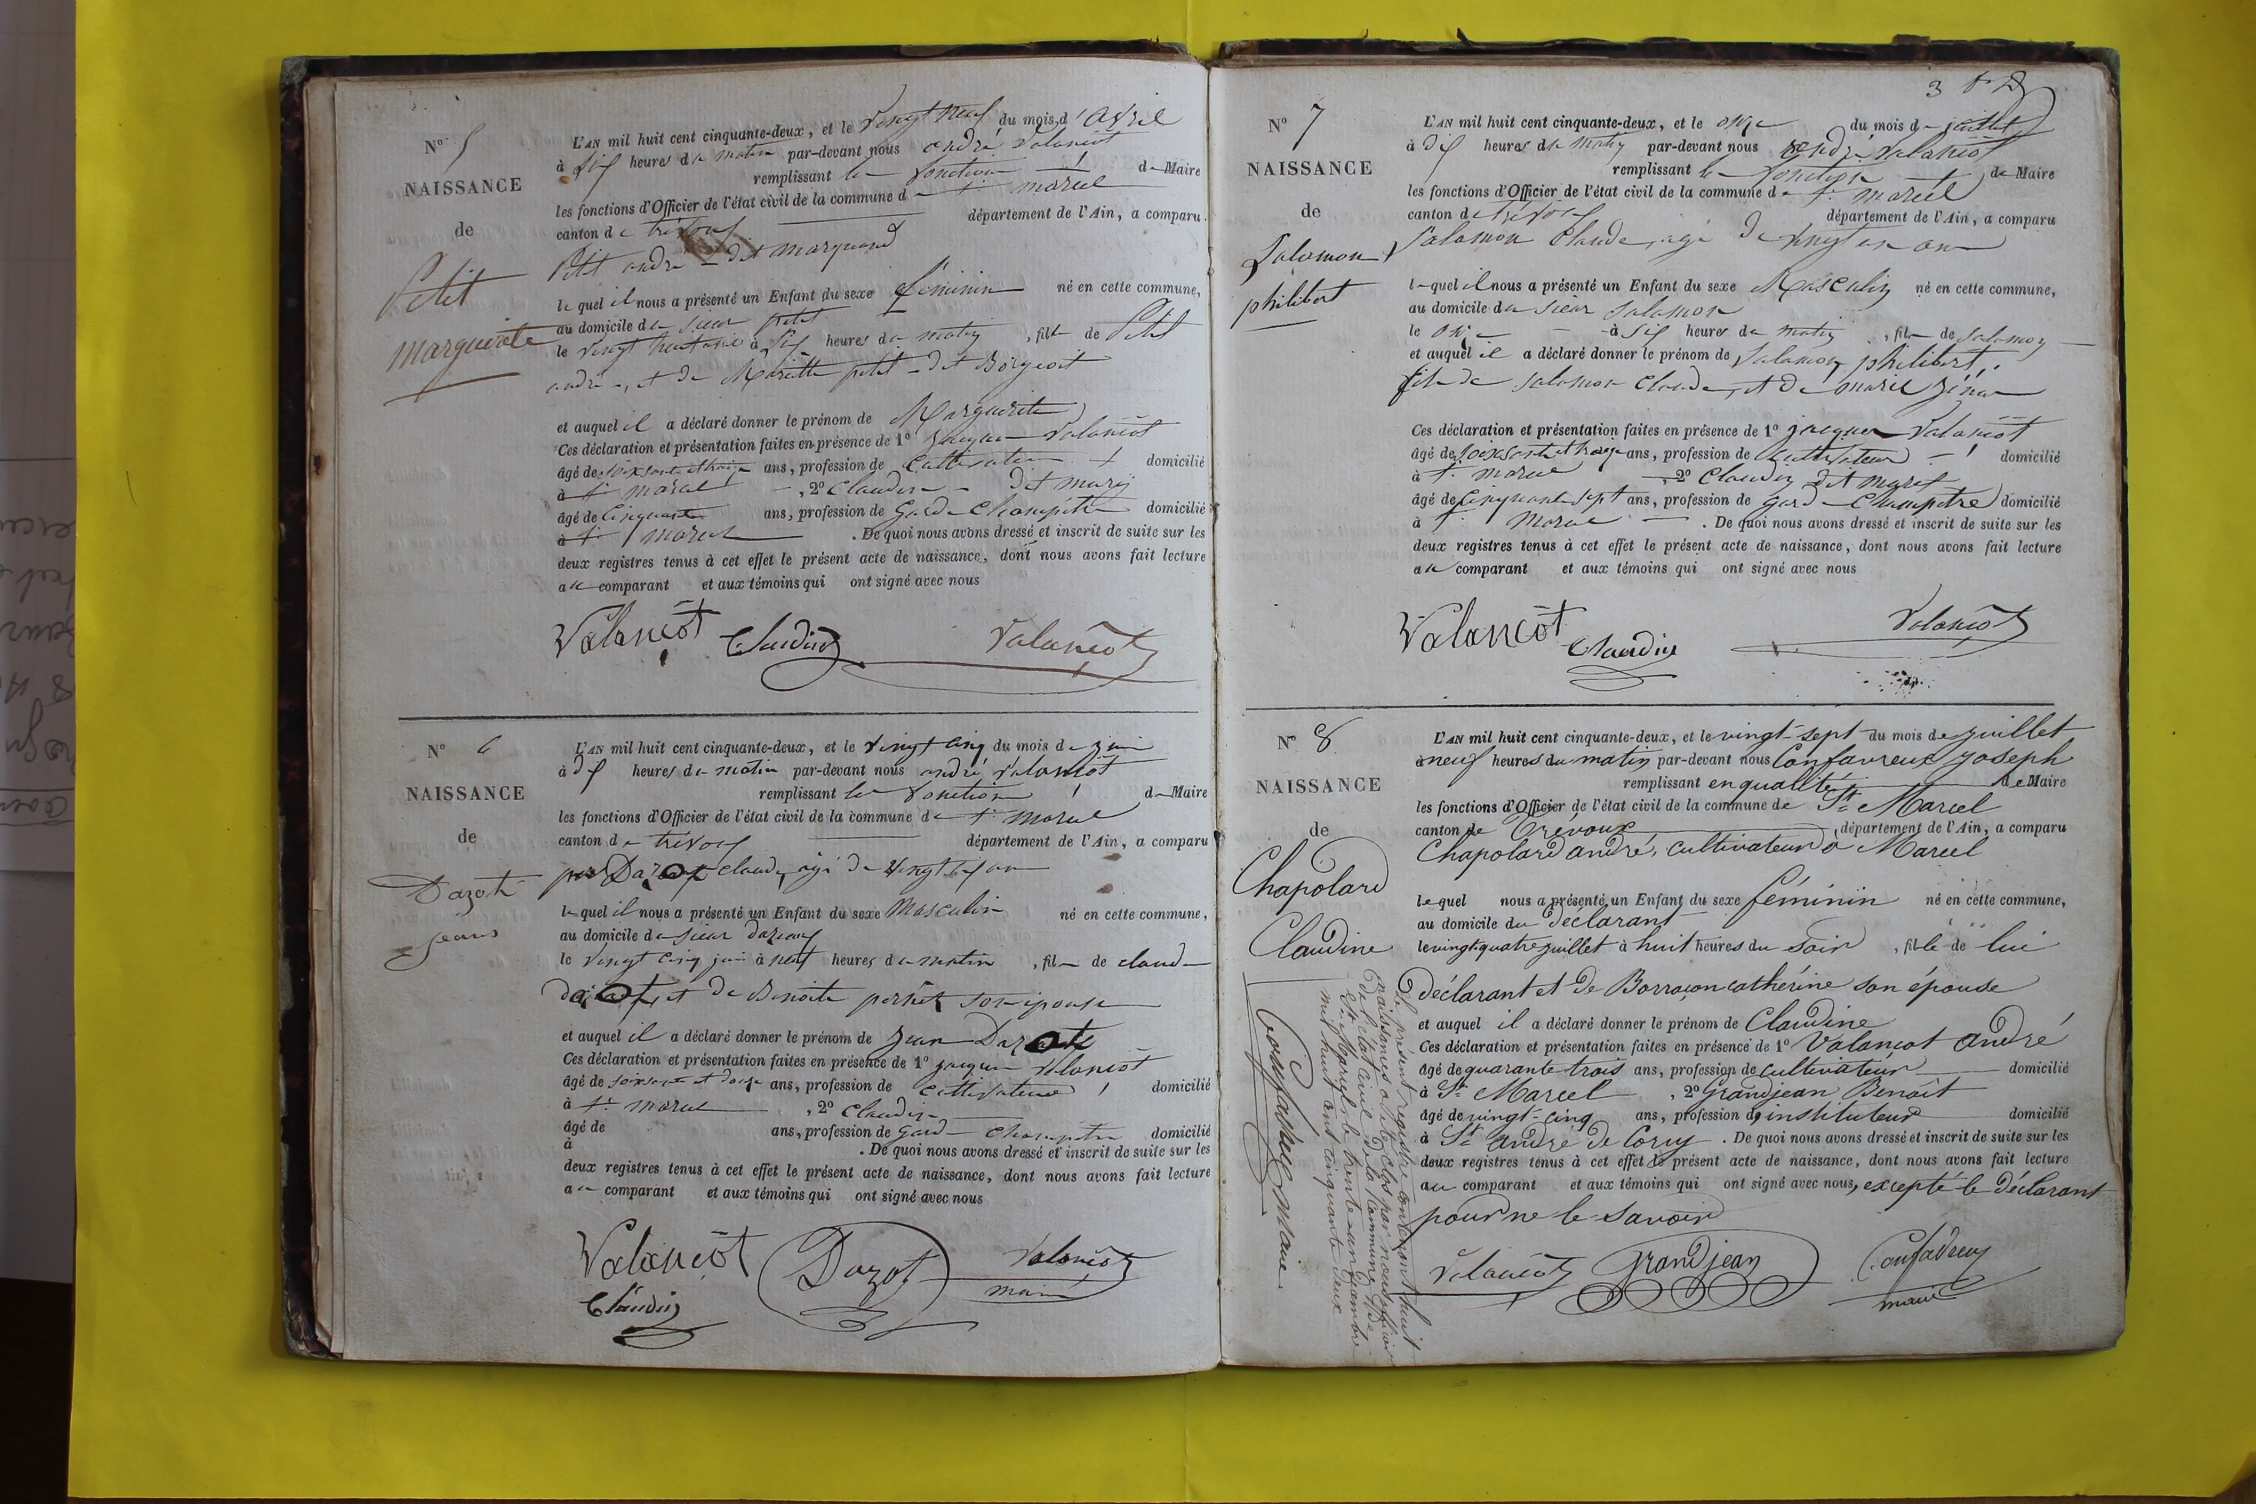 N° 5
NAISSANCE
de
Petit
marguerite
L'AN mil huit cent cinquante-deux, et le vingt neuf du mois d'avril
à six heures du matin par-devant nous andré Valancot
remplissant les fonctions de Maire
les fonctions d'Officier de l'état civil de la commune de St marcel
canton de trévoux département de l'Ain, a comparu
Petit andré dit marquand
lequel il nous a présenté un Enfant du sexe féminin né en cette commune,
au domicile du sieur petit
le vingt à six heures du matin, fille de Petit
andré, et de Mariette petit dit Borgeot
et auquel il a déclaré donner le prénom de Marguerite
Ces déclaration et présentation faites en présence de 1° jacques Valancot
âgé de ans, profession de cultivateur domicilié
à St marcel, 2° Claudin dit marez
âgé de Cinquante ans, profession de Garde Champêtre domicilié
à St marcel. De quoi nous avons dressé et inscrit de suite sur les
deux registres tenus à cet effet le présent acte de naissance, dont nous avons fait lecture
au comparant et aux témoins qui ont signé avec nous
Valancot Claudin Valancot
N° 6
NAISSANCE
de
Dazot
jean
L'AN mil huit cent cinquante-deux, et le vingt cinq du mois de juin
à dix heures du matin par-devant nous andré Valancot
remplissant les fonctions de Maire
les fonctions d'Officier de l'état civil de la commune de St marcel
canton de trévoux département de l'Ain, a comparu
Dazot claude, agé de vingt ans
lequel il nous a présenté un Enfant du sexe Masculin né en cette commune,
au domicile du sieur
le vingt cinq juin à neuf heures du matin, fils de claude
Dazot, et de Benoite son épouse
et auquel il a déclaré donner le prénom de jean Dazot
Ces déclaration et présentation faites en présence de 1° jacques Valancot
âgé de soixante et ans, profession de cultivateur domicilié
à St marcel, 2° Claudin
âgé de ans, profession de garde champêtre domicilié
à . De quoi nous avons dressé et inscrit de suite sur les
deux registres tenus à cet effet le présent acte de naissance, dont nous avons fait lecture
au comparant et aux témoins qui ont signé avec nous
Valancot Dazot Valancot
Claudin maire
3
N° 7
NAISSANCE
de
Salomon
philibert
L'AN mil huit cent cinquante-deux, et le onze du mois de juillet
à dix heures du matin par-devant nous andré Valancot
remplissant les fonctions de Maire
les fonctions d'Officier de l'état civil de la commune de St marcel
canton de trévoux département de l'Ain, a comparu
Salomon Claude, agé de vingt ans
lequel il nous a présenté un Enfant du sexe Masculin né en cette commune,
au domicile du sieur Salomon
le onze à six heures du matin, fils de Salomon
et auquel il a déclaré donner le prénom de Salomon philibert
fils de salomon Claude, et de marie
Ces déclaration et présentation faites en présence de 1° jacques Valancot
âgé de ans, profession de cultivateur domicilié
à St marcel, 2° Claudin dit marez
âgé de Cinquante sept ans, profession de garde Champêtre domicilié
à St marcel. De quoi nous avons dressé et inscrit de suite sur les
deux registres tenus à cet effet le présent acte de naissance, dont nous avons fait lecture
au comparant et aux témoins qui ont signé avec nous
Valancot Claudin Valancot
N° 8
NAISSANCE
de
Chapolard
Claudine
L'AN mil huit cent cinquante-deux, et le vingt-sept du mois de juillet
à neuf heures du matin par-devant nous Confavreux joseph
remplissant en qualité de Maire
les fonctions d'Officier de l'état civil de la commune de St Marcel
canton de Trévoux département de l'Ain, a comparu
Chapolard andré, cultivateur à Marcel
lequel nous a présenté un Enfant du sexe féminin né en cette commune,
au domicile du déclarant
le vingt quatre juillet à huit heures du soir, fille de lui
déclarant et de Borraçon cathérine son épouse
et auquel il a déclaré donner le prénom de Claudine
Ces déclaration et présentation faites en présence de 1° Valançot andré
âgé de quarante trois ans, profession de cultivateur domicilié
à St Marcel, 2° Grandjean Benoit
âgé de vingt-cinq ans, profession d'instituteur domicilié
à St andré de Corcy. De quoi nous avons dressé et inscrit de suite sur les
deux registres tenus à cet effet le présent acte de naissance, dont nous avons fait lecture
au comparant et aux témoins qui ont signé avec nous, excepté le déclarant
pour ne le savoir
Valancot Grandjean Confavreux
maire
Le présent registre contenant huit
naissances a été clos par nous officier
de l'état civil de la Commune de
St Marcel le trente un décembre
mil huit cent cinquante deux
Confavreux Maire